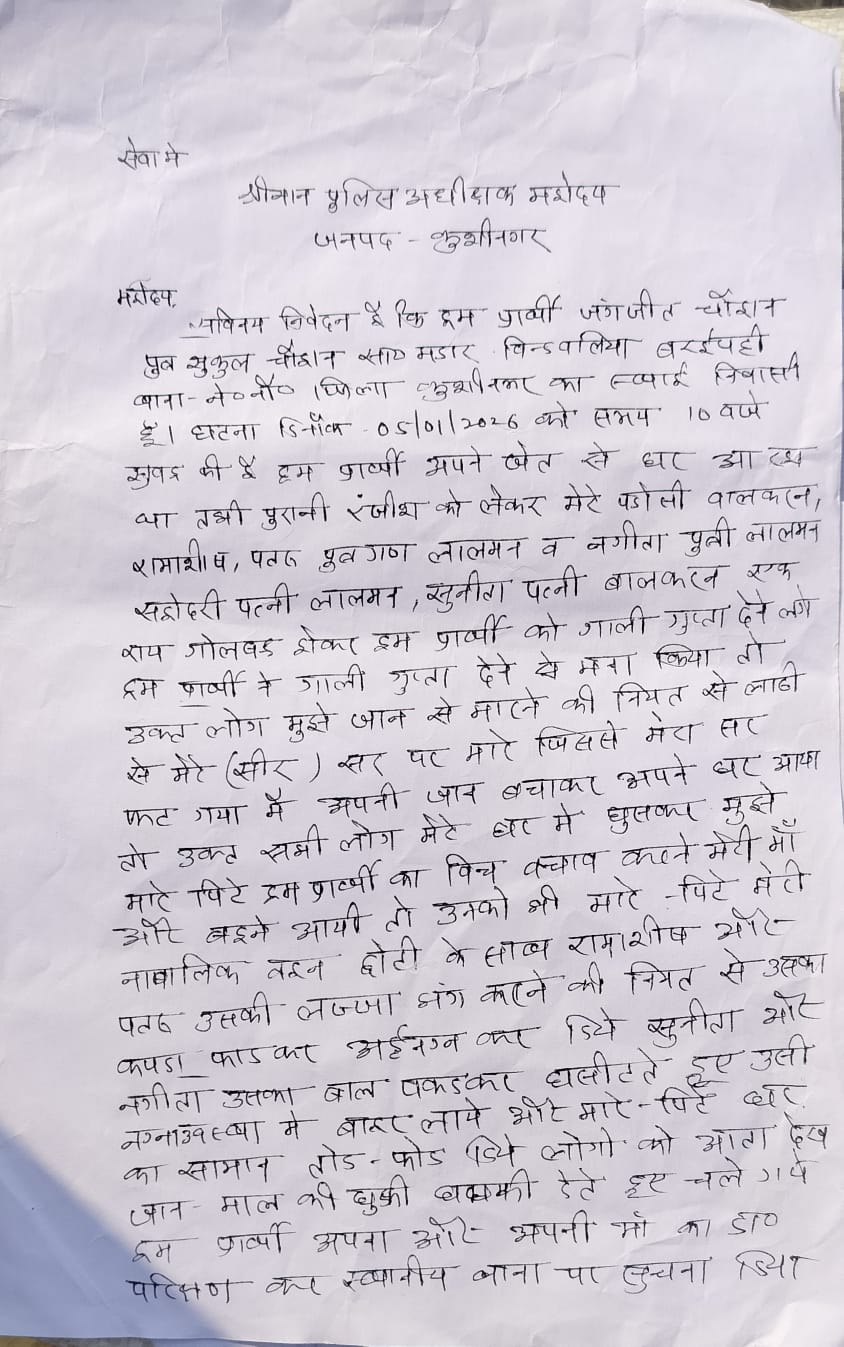 सेवा मे
श्रीमान पुलिस अधीक्षक महोदय
जनपद - कुशीनगर
महोदय,
सविनय निवेदन है कि हम प्रार्थी जंगजीत चौहान
पुत्र सुकुल चौहान सा० मडार विन्दवलिया बरईपट्टी
थाना - ने०नौ० जिला कुशीनगर का स्थाई निवासी
हूँ। घटना दिनाँक 05/01/2026 को समय 10 बजे
सुबह की है हम प्रार्थी अपने खेत से घर आ रहा
था तभी पुरानी रंजीश को लेकर मेरे पडोसी बालकरन,
रामाशीष, पतरु पुत्रगण लालमन व नगीता पुत्री लालमन
सहोदरी पत्नी लालमन, सुनीता पत्नी बालकरन एक
राय गोलबंद होकर हम प्रार्थी को गाली गुप्ता देने लगे
हम प्रार्थी ने गाली गुप्ता देने से मना किया तो
उक्त लोग मुझे जान से मारने की नियत से लाठी
से मेरे (सीर) सर पर मारे जिससे मेरा सर
फट गया मैं अपनी जान बचाकर अपने घर आया
तो उक्त सभी लोग मेरे घर मे घुसकर मुझे
मारे पिटे हम प्रार्थी का विच बचाव करने मेरी माँ
और बहने आयी तो उनको भी मारे - पिटे मेरी
नाबालिक बहन छोटी के साथ रामाशीष और
पतरु उसकी लज्जा भंग करने की नियत से उसका
कपडा फाडकर अर्धनग्न कर दिये सुनीता और
नगीता उसका बाल पकडकर घसीटते हुए उसी
नग्नाअवस्था मे बाहर लाये और मारे - पिटे घर
का सामान तोड - फोड दिये लोगो को आता देख
जान - माल की धुकी धमकी देते हुए चले गये
हम प्रार्थी अपना और अपनी माँ का डा०
परिक्षण कर स्थानीय थाना पर सुचना दिया